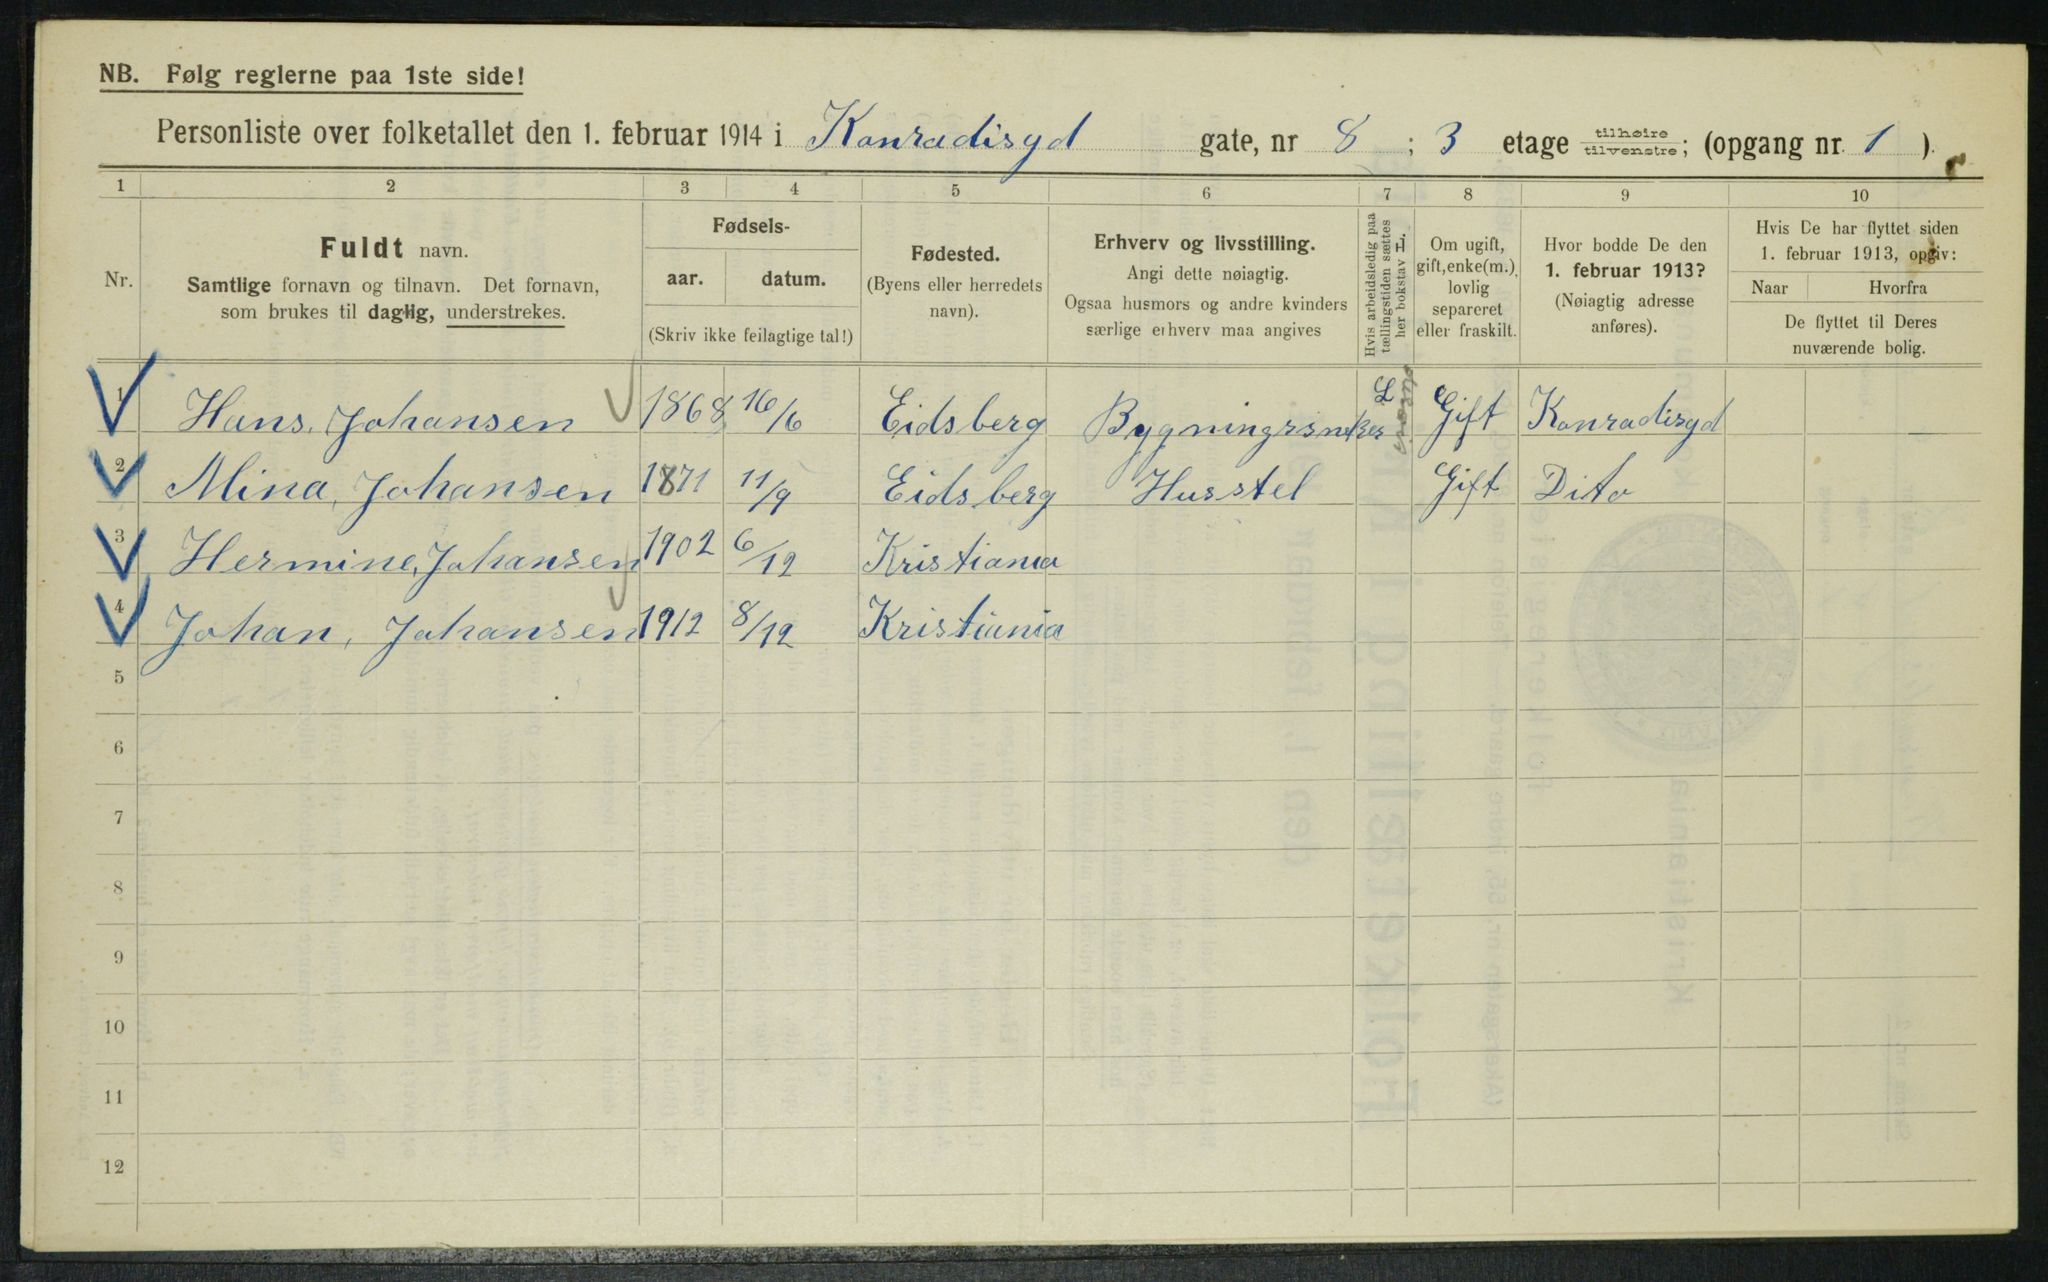 NB. Følg reglerne paa 1ste side!
Personliste over folketallet den 1. februar 1914 i Konradisgd gate, nr 8 ; 3 etage tilhøire/tilvenstre; (opgang nr. 1 ).
1 2 3 4 5 6 7 8 9 10
Nr.
Fuldt navn.
Samtlige fornavn og tilnavn. Det fornavn,
som brukes til daglig, understrekes.
Fødsels-
aar. datum.
(Skriv ikke feilagtige tal!)
Fødested.
(Byens eller herredets
navn).
Erhverv og livsstilling.
Angi dette nøiagtig.
Ogsaa husmors og andre kvinders
særlige erhverv maa angives
Hvis arbeidsledig paa
tællingstiden sættes
her bokstav L.
Om ugift,
gift, enke(m.),
lovlig
separeret
eller fraskilt.
Hvor bodde De den
1. februar 1913?
(Nøiagtig adresse
anføres).
Hvis De har flyttet siden
1. februar 1913, opgiv:
Naar Hvorfra
De flyttet til Deres
nuværende bolig.
1 Hans. Johansen 1868 16/6 Eidsberg Bygningssneker L Gift Konradisgd
2 Mina, Johansen 1871 11/9 Eidsberg Husstel Gift Dito
3 Hermine, Johansen 1902 6/12 Kristiania
4 Johan, Johansen 1912 8/12 Kristiania
5
6
7
8
9
10
11
12